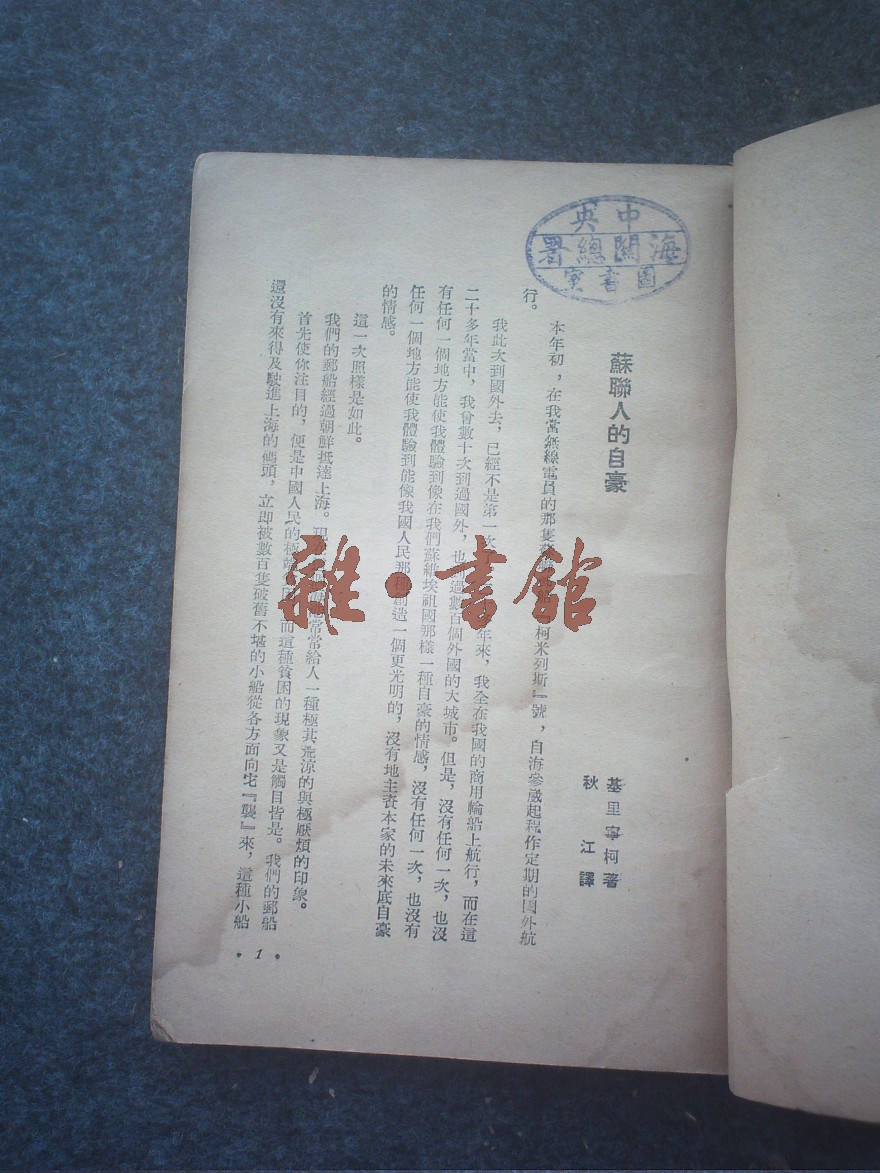 中央
海關總署
圖書室
蘇聯人的自豪
基里寧柯著
秋江譯
本年初，在我當無線電員的那隻 柯米列斯』號，自海參崴起程作定期的國外航
行。
我此次到國外去，已經不是第一次 年來，我全在我國的商用輪船上航行，而在這
二十多年當中，我曾數十次到過國外，也 過數百個外國的大城市。但是，沒有任何一次，也沒
有任何一個地方能使我體驗到像在我們蘇維埃祖國那樣一種自豪的情感，沒有任何一次，也沒有
任何一個地方能使我體驗到能像我國人民那種創造一個更光明的，沒有地主資本家的未來底自豪
的情感。
這一次照樣是如此。
我們的郵船經過朝鮮抵達上海。現 常常給人一種極其荒涼的與極厭煩的印象。
首先使你注目的，便是中國人民的極 而這種貧困的現象又是觸目皆是。我們的郵船
還沒有來得及駛進上海的碼頭，立即被數百隻破舊不堪的小船從各方面向它『襲』來，這種小船
• 1 •
雜·書館